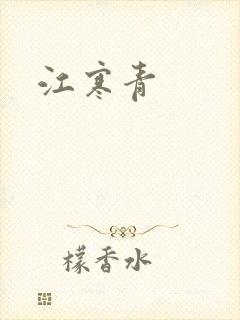 江寒青
檬香水